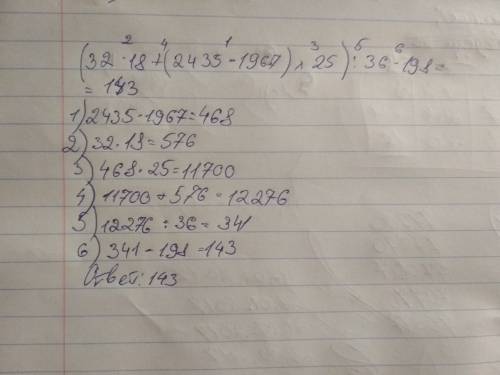 (32 · 18 + (2435 - 1967) × 25) : 36 - 198 =
= 143
1) 2435 - 1967 = 468
2) 32 · 18 = 576
3) 468 · 25 = 11700
4) 11700 + 576 = 12276
5) 12276 : 36 = 341
6) 341 - 198 = 143
Ответ: 143